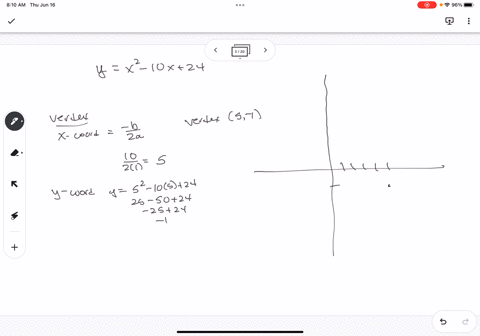 8:10 AM Thu Jun 16
96%
5 / 20
y = x² - 10x + 24
vertex
x-coord = -b/2a
vertex (5, -1)
10/2(1) = 5
y-coord y = 5² - 10(5) + 24
25 - 50 + 24
-25 + 24
-1